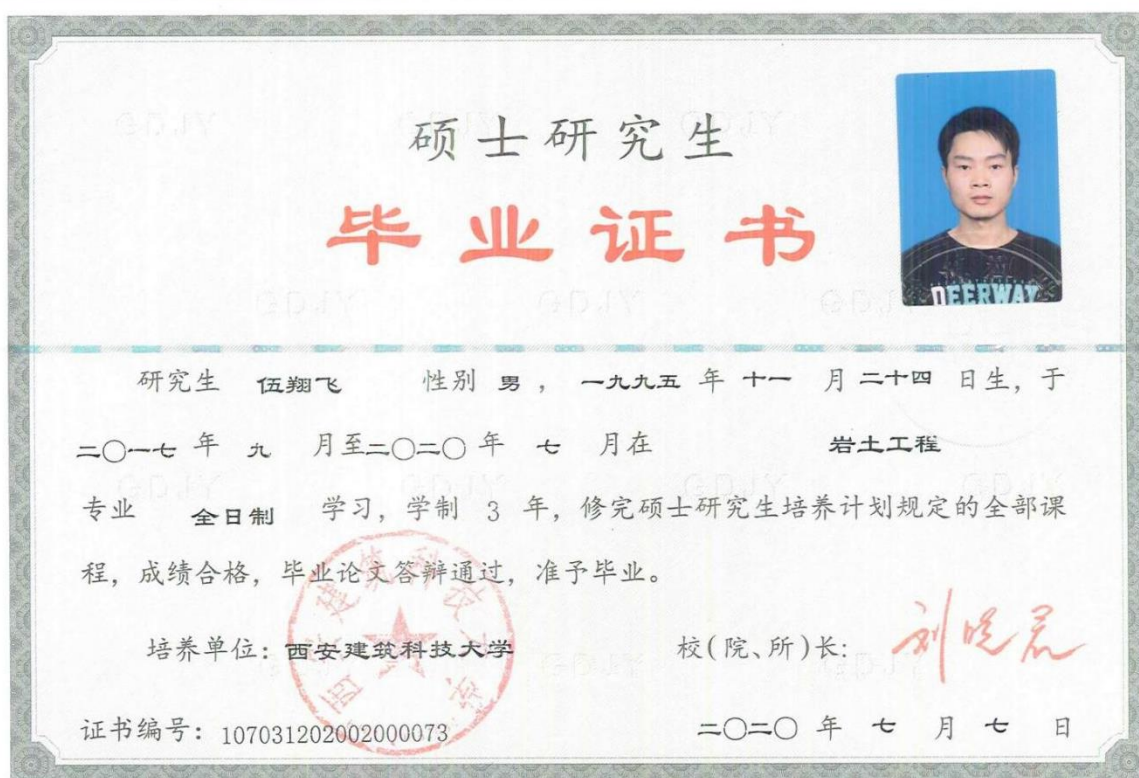 硕士研究生
毕业证书
DEERWAY
研究生 伍翔飞 性别 男，一九九五 年 十一 月 二十四 日生，于
二〇一七 年 九 月至二〇二〇 年 七 月在 岩土工程
专业 全日制 学习，学制 3 年，修完硕士研究生培养计划规定的全部课
程，成绩合格，毕业论文答辩通过，准予毕业。
西安建筑科技大学
培养单位：西安建筑科技大学 校(院、所)长：刘晓君
证书编号：107031202002000073 二〇二〇 年 七 月 七 日